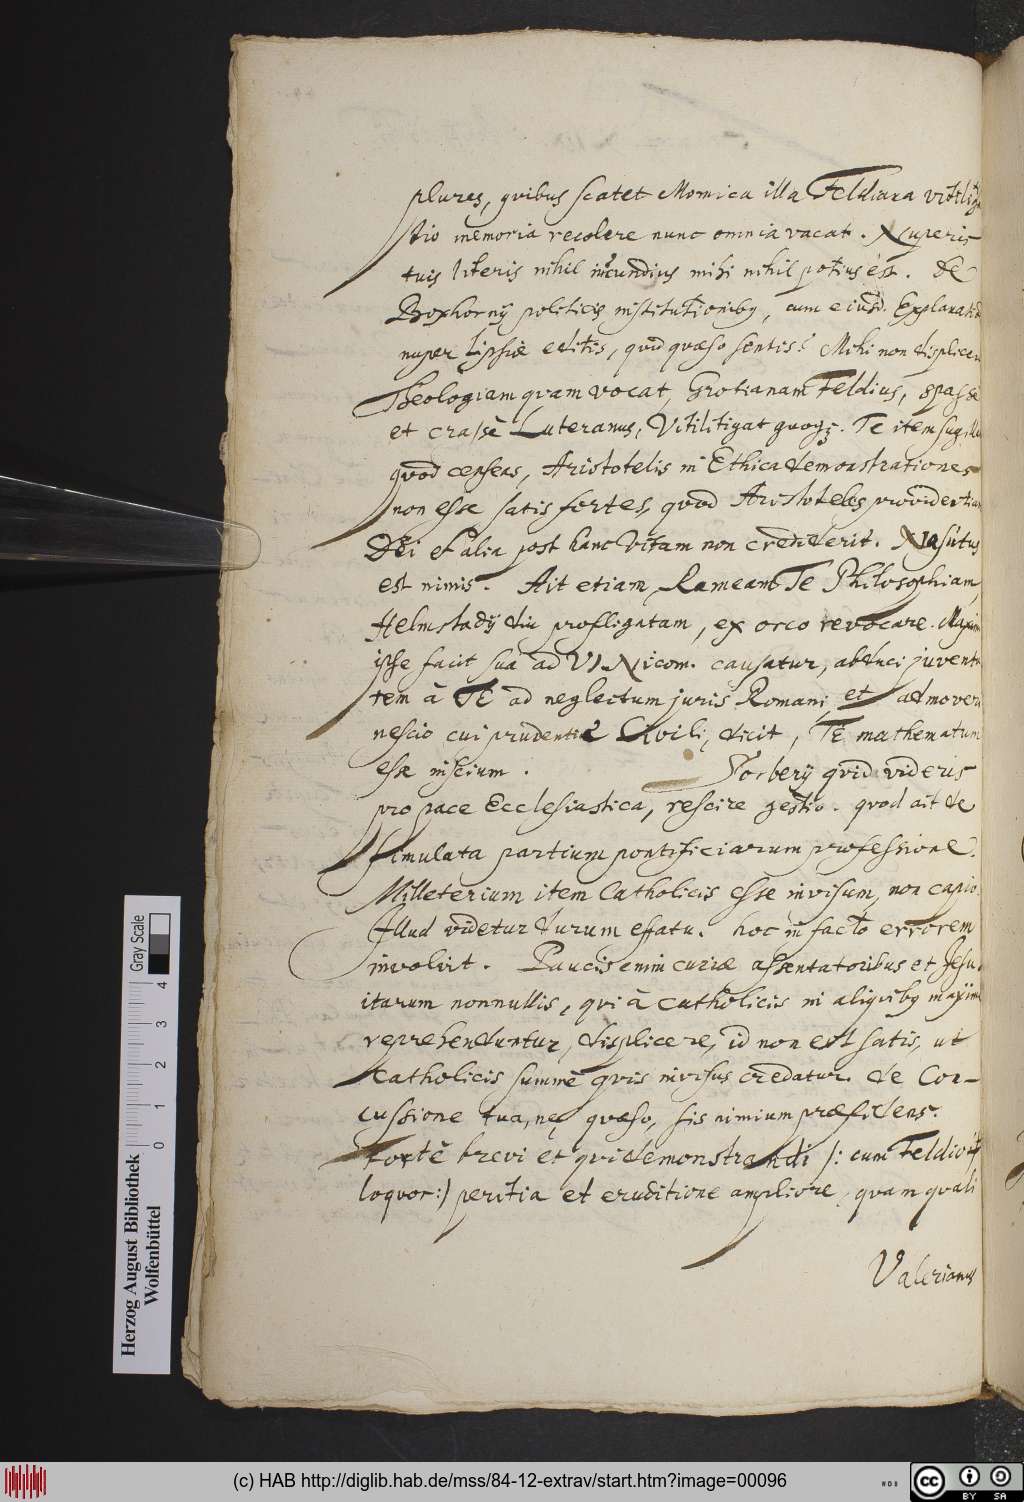 plures, quibus scatet Momica illa Feldiana vitiliga
tio memoria recolere nunc omnia vacat. Nuperis
tuis literis nihil iucundius mihi nihil potius est. De
Boxhornij politicis institutionibꝫ, cum eiusd. Explanatio
nuper Lipsiæ editis, quid quæso sentis? Mihi non displicen
Theologiam quam vocat, Grotianam Feldius, spassè
et crassè Luteranus, Vitilitigat quoqꝫ. Te item sugillat
quod censeas, Aristotelis in Ethica demonstrationes
non esse satis fortes, quod Aristoteles providentiam
Dei et alia post hanc vitam non crediderit. Nasutus
est nimis. Ait etiam, Rameam Te Philosophiam,
Helmstadij diu profligatam, ex orco revocare. Maxim
ipse facit sua ad VI. Nicom. causatur, abduci juventu
tem à TE ad neglectum juris Romani, et admoveri
nescio cui prudentiæ Civili, dicit, Te mathematum
esse inscium.
Torberij quid videris
pro pace Ecclesiastica, rescire gestio. quod ait de
simulata partium pontificiarum professione.
Milleterium item Catholicis esse invisum, non capio.
Illud videtur durum effatu. hoc in facto errorem
involvit. Paucis enim curiæ assentatoribus et Jesu-
itarum nonnullis, qui à catholicis in aliquibꝫ maxime
reprehenduntur, displicere, id non est satis, ut
catholicis summè quis invisus credatur. de Con-
cussione tua, ne, quæso, sis nimium præfidens.
Fortè brevi et qui demonstrandi /: cum Feldio ut
loquor:/ peritia et eruditione ampliore, quam quali
Valerianus
Herzog August Bibliothek
Wolfenbüttel
Gray Scale
0 1 2 3 4
(c) HAB http://diglib.hab.de/mss/84-12-extrav/start.htm?image=00096
WDB
CC BY SA